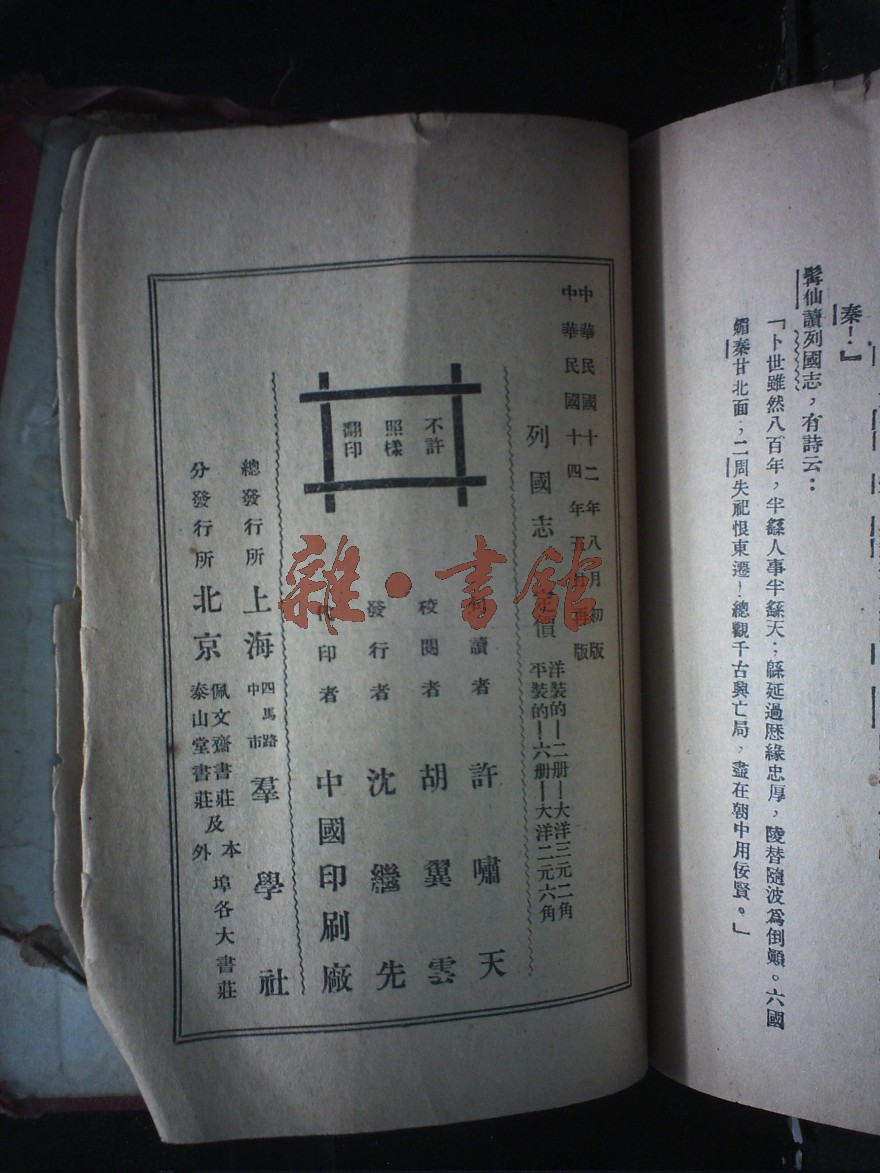 秦！』
髯仙讀列國志，有詩云：
「卜世雖然八百年，半繇人事半繇天；緜延過歷緣忠厚，陵替隨波爲倒顛。六國
媚秦甘北面，二周失祀恨東遷！總觀千古興亡局，盡在朝中用佞賢。」
中華民國十二年八月初版
中華民國十四年五月再版
列國志定價
洋裝的—二册—大洋三元二角
平裝的—六册—大洋二元六角
不許
照樣
翻印
句讀者 許嘯天
校閱者 胡翼雲
發行者 沈繼先
代印者 中國印刷廠
總發行所 上海 四馬路中市 羣學社
分發行所 北京 佩文齋書莊及泰山堂書莊 本外埠各大書莊
雜·書館